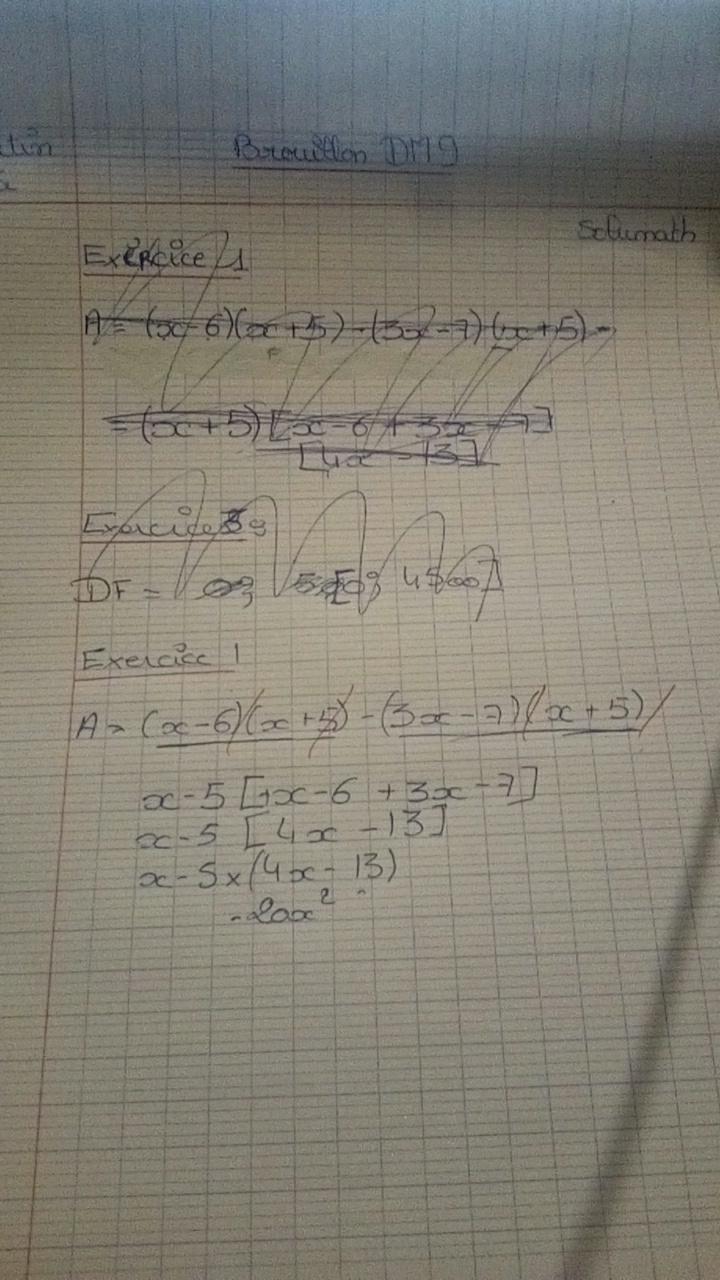 Brouillon DM9
Solumath
Exercice 1
A = (x-6)(x+5) - (3x-7)(x+5) -
= (x+5) [x-6 + 3x - 7]
[4x - 13]
Exercice
DF =
Exercice 1
A = (x-6)(x+5) - (3x-7)(x+5)
x-5 [1x-6 + 3x-7]
x-5 [4x -13]
x-5x(4x-13)
-20x²